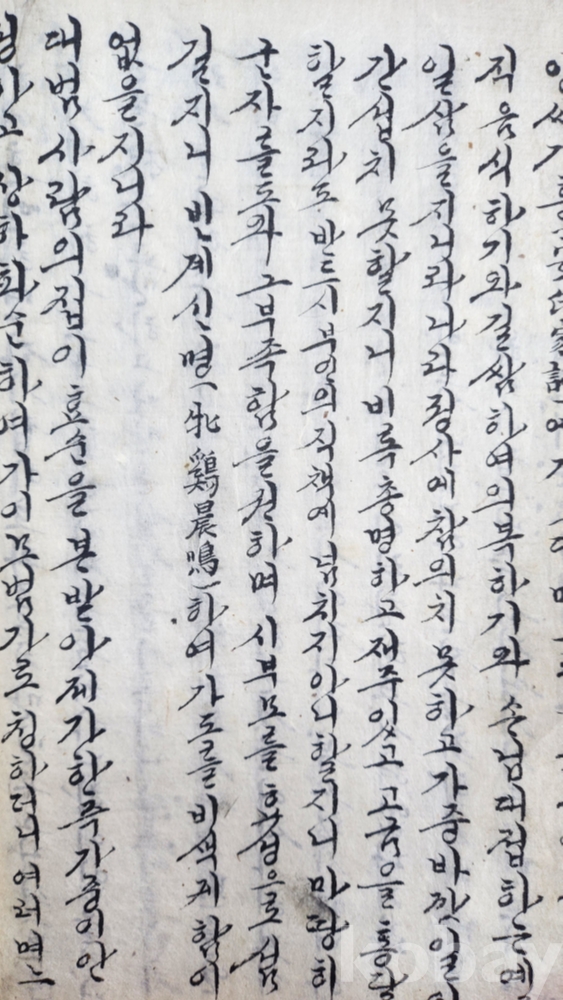 직 음식하기와 길쌈하여 의복하기와 손님 대접하는 예
일삼을지니라 나라 정사에 참의치 못하고 가중 바깥일
간섭치 못할지니 비록 총명하고 재주 있고 고금을 통달
할지라도 반드시 부인의 직책에 넘치지 아니할지니 마땅히
군자를 도와 그 부족함을 권하며 시부모를 효성으로 섬
길지니 빈계신명(牝鶏晨鳴)하여 가도를 비색케 함이
없을지니라
대범 사람의 집이 효순을 본받아 제가한 즉 가중이 안
상하화순하여 가이 모범가로 칭하더니 여러 며느
kobay